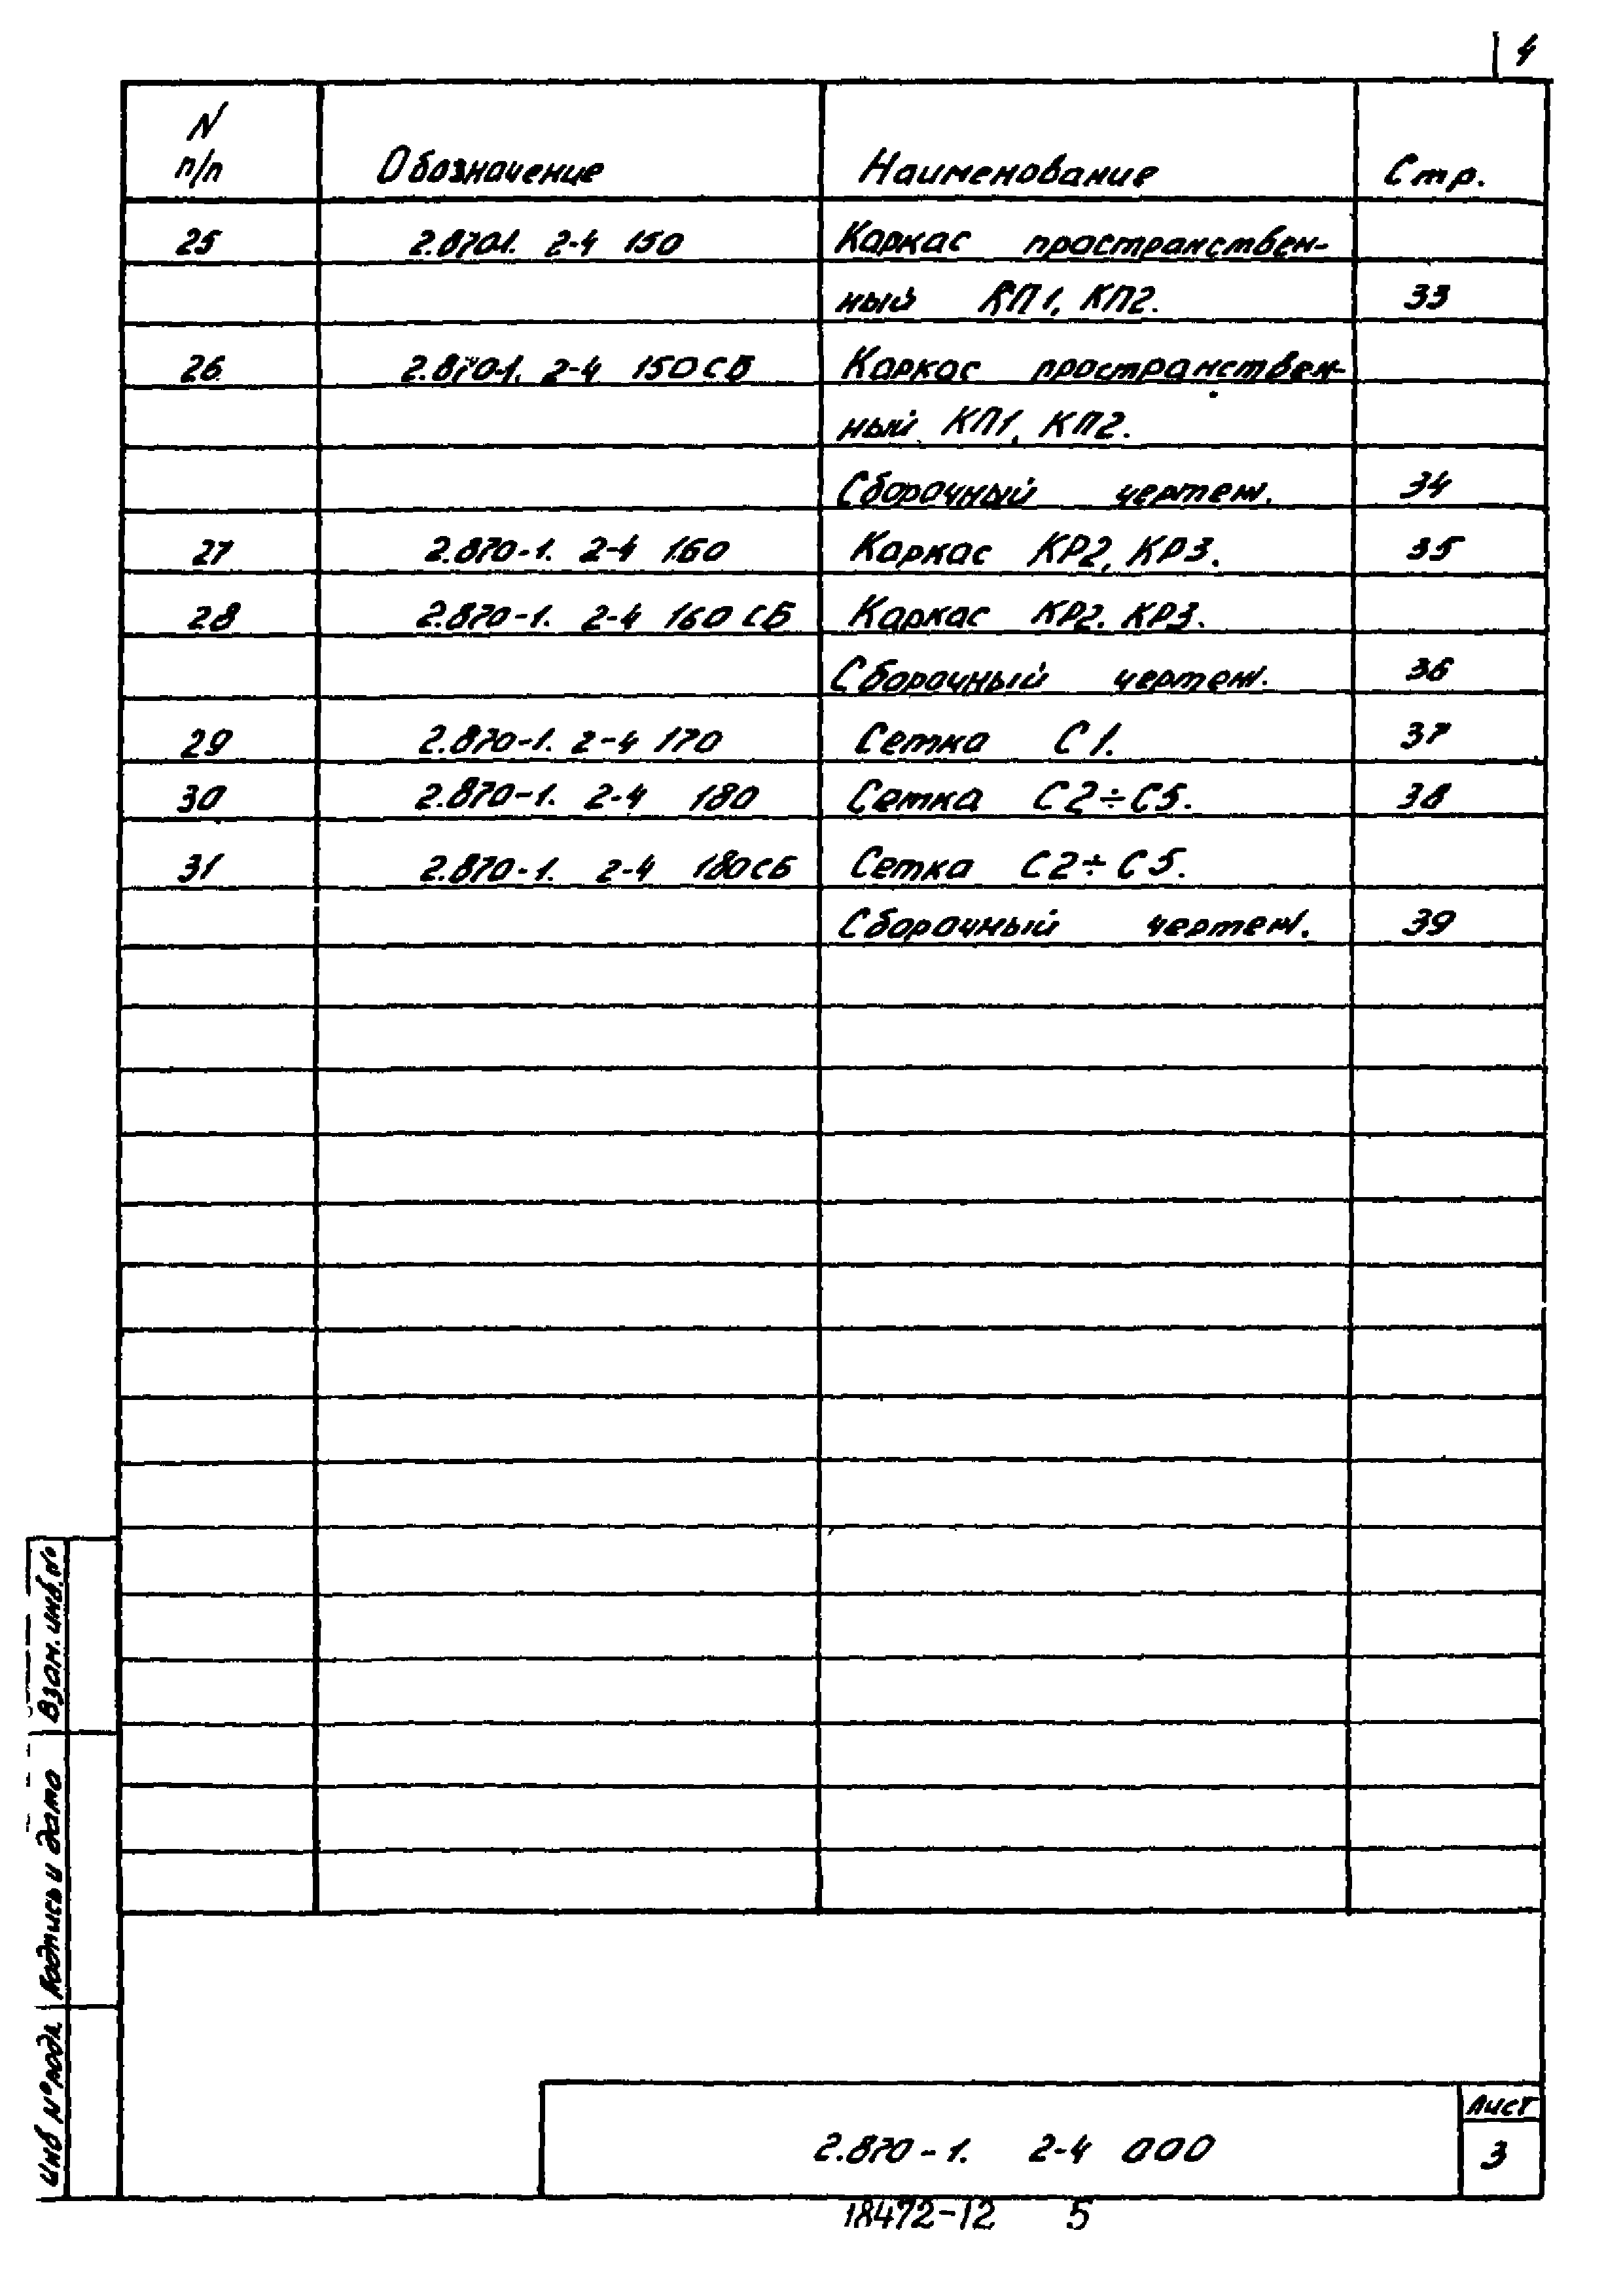 4
N п/п Обозначение Наименование Стр.
25 2.870-1. 2-4 150 Каркас пространствен-
ный КП1, КП2. 33
26 2.870-1. 2-4 150СБ Каркас пространствен-
ный КП1, КП2.
Сборочный чертеж. 34
27 2.870-1. 2-4 160 Каркас КР2, КР3. 35
28 2.870-1. 2-4 160СБ Каркас КР2. КР3.
Сборочный чертеж. 36
29 2.870-1. 2-4 170 Сетка С1. 37
30 2.870-1. 2-4 180 Сетка С2÷С5. 38
31 2.870-1. 2-4 180СБ Сетка С2÷С5.
Сборочный чертеж. 39
Взам. инв. №
Подпись и дата
Инв № подл.
2.870-1. 2-4 000
Лист
3
18472-12 5